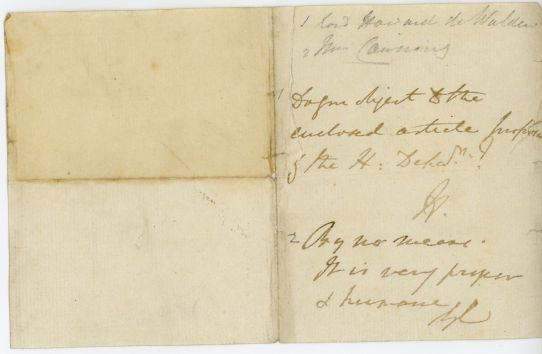 1 Lord Howard de Walden
2 Mr Canning
1 Do you object to the
enclosed article
of the H:
H.
2 By no means.
It is very proper
& humane